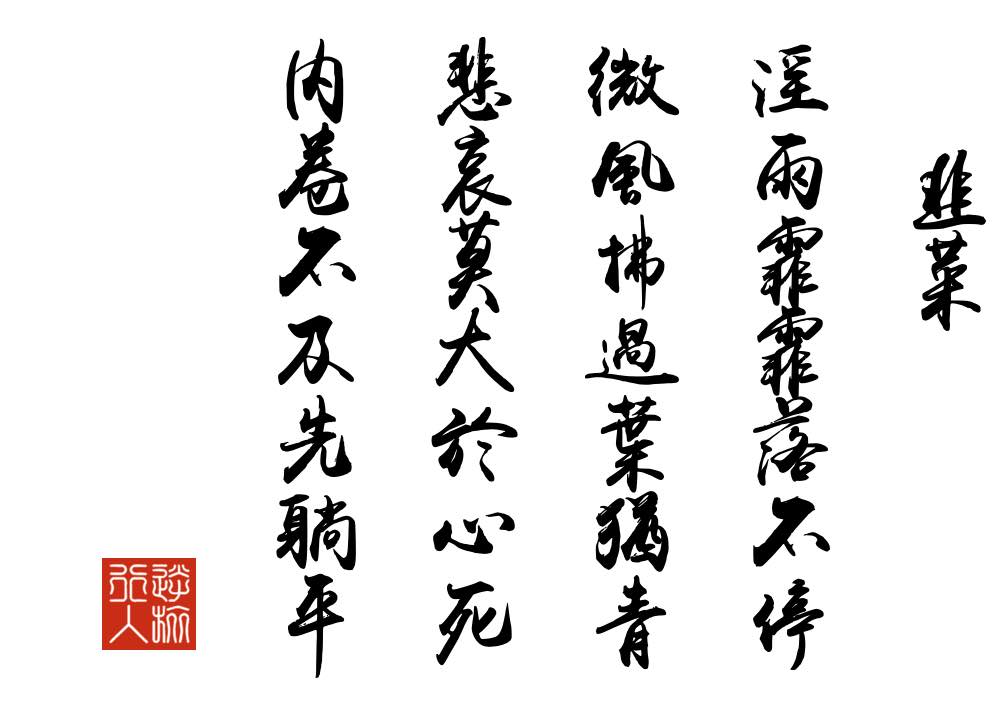 韭菜
淫雨霏霏落不停
微風拂過葉猶青
悲哀莫大於心死
內卷不及先躺平